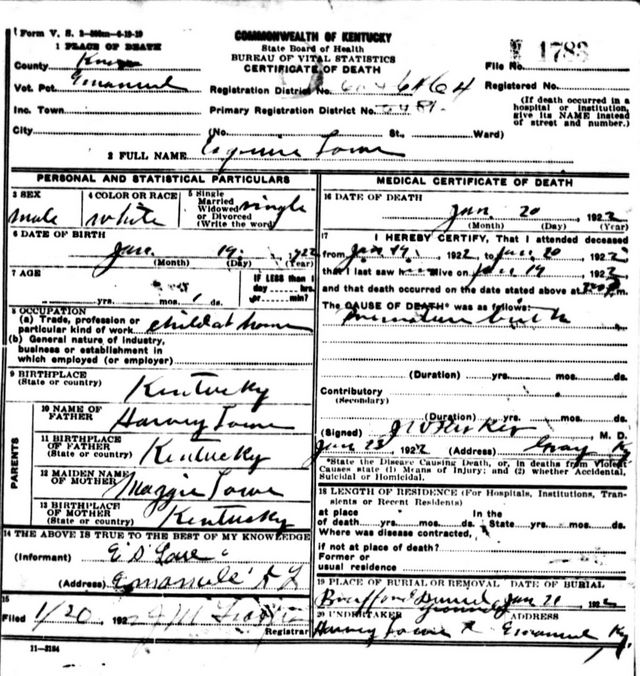 Form V. S.
COMMONWEALTH OF KENTUCKY
State Board of Health
BUREAU OF VITAL STATISTICS
CERTIFICATE OF DEATH
1 PLACE OF DEATH
County Knox
Vot. Pct. Emanuel
Inc. Town
City
Registration District No.
Primary Registration District No.
(No. St., Ward)
File No. 1783
Registered No.
(If death occurred in a
hospital or institution,
give its NAME instead
of street and number.)
2 FULL NAME
PERSONAL AND STATISTICAL PARTICULARS
3 SEX
male
4 COLOR OR RACE
white
5 Single
Married
Widowed
or Divorced
(Write the word)
single
6 DATE OF BIRTH
Jan. 19, 1922
(Month) (Day) (Year)
7 AGE
yrs. mos. 1
IF LESS than 1
day hrs.
or min.?
8 OCCUPATION
(a) Trade, profession or
particular kind of work child at home
(b) General nature of industry,
business or establishment in
which employed (or employer)
9 BIRTHPLACE
(State or country) Kentucky
PARENTS
10 NAME OF
FATHER Harvey
11 BIRTHPLACE
OF FATHER
(State or country) Kentucky
12 MAIDEN NAME
OF MOTHER Maggie
13 BIRTHPLACE
OF MOTHER
(State or country) Kentucky
14 THE ABOVE IS TRUE TO THE BEST OF MY KNOWLEDGE
(Informant)
(Address)
15
Filed 1/20 192
Registrar
11-3184
MEDICAL CERTIFICATE OF DEATH
16 DATE OF DEATH
Jan. 20, 1922
(Month) (Day) (Year)
17 I HEREBY CERTIFY, That I attended deceased
from Jan 19, 1922, to Jan. 20, 1922
that I last saw h alive on Jan 19, 1922
and that death occurred on the date stated above at m.
The CAUSE OF DEATH* was as follows:
premature birth
(Duration) yrs. mos. ds.
Contributory
(Secondary)
(Duration) yrs. mos. ds.
(Signed) M. D.
1922 (Address) Gray Ky
*State the Disease Causing Death, or, in deaths from Violent
Causes state (1) Means of Injury; and (2) whether Accidental,
Suicidal or Homicidal.
18 LENGTH OF RESIDENCE (For Hospitals, Institutions, Tran-
sients or Recent Residents)
at place In the
of death yrs. mos. ds. State yrs. mos. ds.
Where was disease contracted,
if not at place of death?
Former or
usual residence
19 PLACE OF BURIAL OR REMOVAL DATE OF BURIAL
Jan 20, 192
20 UNDERTAKER ADDRESS
Harvey Emanuel Ky.